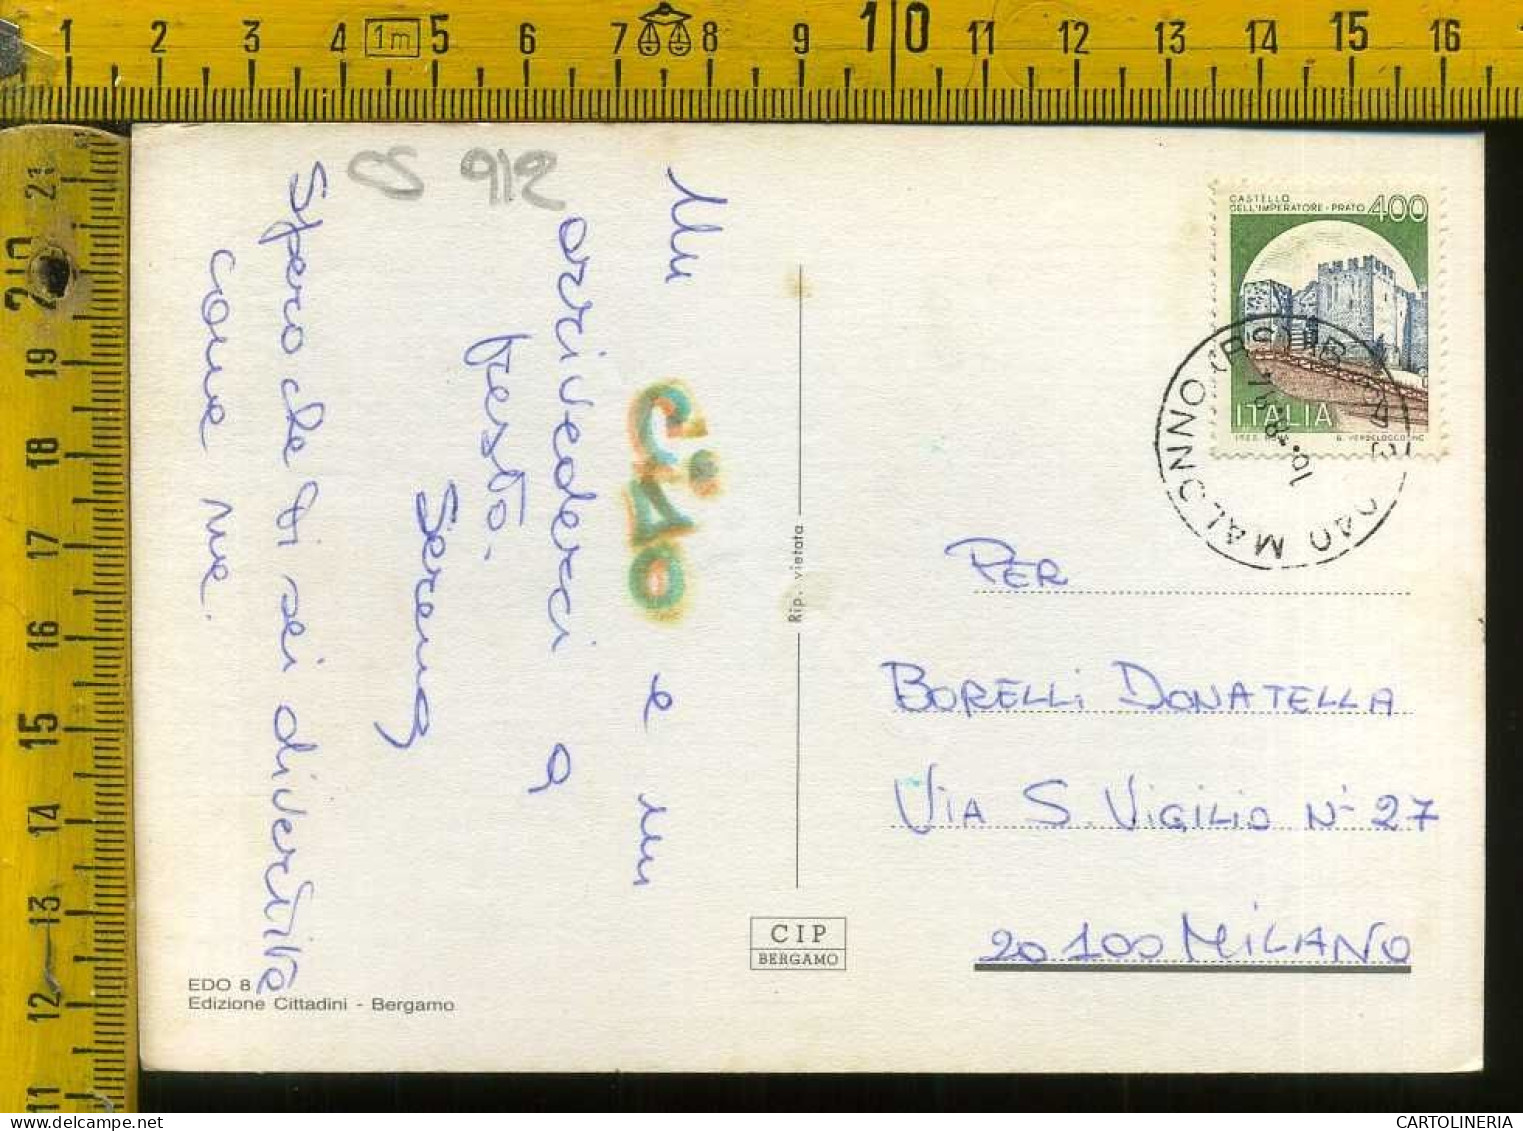 1 2 3 4 1m 5 6 7 8 9 10 11 12 13 14 15 16
21
20
19
18
17
16
15
14
13
12
11
CS 912
Un
CIAO e un
arrivederci a
presto.
Serena
Spero che ti sei divertita
come me.
CASTELLO
DELL'IMPERATORE - PRATO 400
ITALIA
MALONNO (BS)
PER
BORELLI DONATELLA
VIA S. VIGILIO N° 27
20100 MILANO
Rip. vietata
CIP
BERGAMO
EDO 8
Edizione Cittadini - Bergamo
CARTOLINERIA